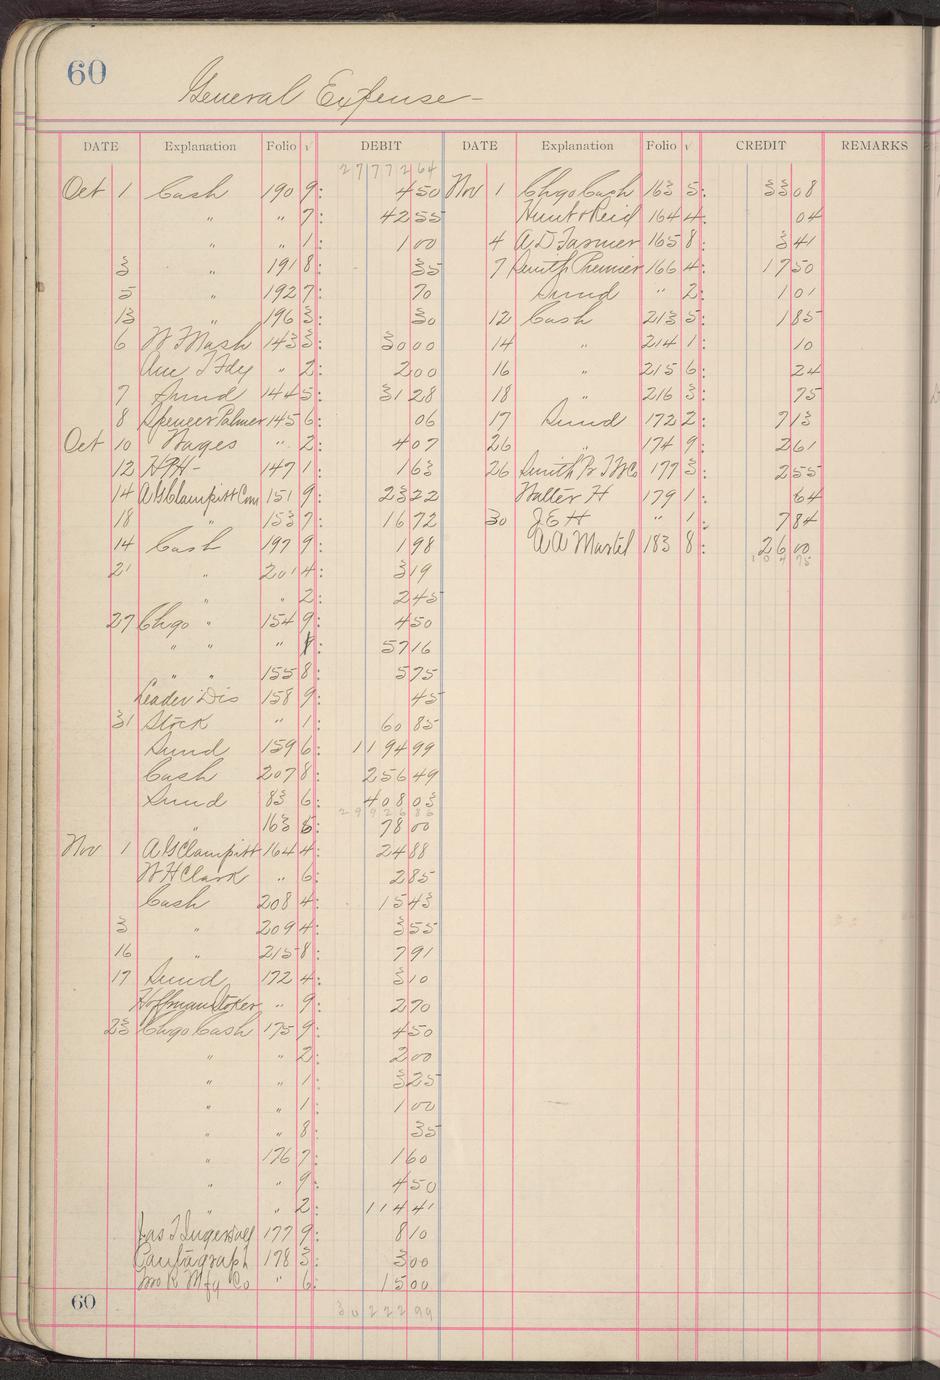 60
General Expense-
DATE Explanation Folio √ DEBIT DATE Explanation Folio √ CREDIT REMARKS
2 7 7 7 2 64
Oct 1 Cash 190 9: 4 50 Nov 1 Chgo Cash 163 5: 33 08
" " 7: 42 55 Hunt & Reid 164 4: 04
" " 1: 1 00 4 A D Farmer 165 8: 3 41
3 " 191 8: 35 7 Smith Premier 166 4: 17 50
5 " 192 7: 70 Sund " 2: 1 01
13 " 196 3: 30 12 Cash 213 5: 1 85
6 W F Mash 143 3: 30 00 14 " 214 1: 10
Am T Fdy " 2: 2 00 16 " 215 6: 24
7 Sund 144 5: 31 28 18 " 216 3: 75
8 Spencer Palmer 145 6: 06 17 Sund 172 2: 7 13
Oct 10 Wages " 2: 4 07 26 " 174 9: 2 61
12 HPH- 147 1: 1 63 26 Smith Pr T W Co 177 3: 2 55
14 A G Clampitt Com 151 9: 23 22 Walter H 179 1: 64
18 " 153 7: 16 72 30 J E H " 1: 7 84
14 Cash 197 9: 1 98 A A Martel 183 8: 26 00
21 " 201 4: 3 19 1 0 4 75
" " 2: 2 45
27 Chgo " 154 9: 4 50
" " " 8: 57 16
" " 155 8: 5 75
Leader Dis 158 9: 45
31 Stock " 1: 60 85
Sund 159 6: 1194 99
Cash 207 8: 256 49
Sund 83 6: 408 03
2 9 9 2 6 86
" 163 5: 78 00
Nov 1 A G Clampitt 164 4: 24 88
W H Clark " 6: 2 85
Cash 208 4: 15 43
3 " 209 4: 3 55
16 " 215 8: 7 91
17 Sund 172 4: 3 10
Hoffman Stoker " 9: 2 70
23 Chgo Cash 175 9: 4 50
" " 2: 2 00
" " 1: 3 25
" " 1: 1 00
" " 8: 35
" 176 7: 1 60
" " 9: 4 50
" " 2: 114 41
Jas T Ingersoll 177 9: 8 10
Pantagraph 178 3: 3 00
R Mfg Co " 6: 15 00
60
3 0 2 2 2 99